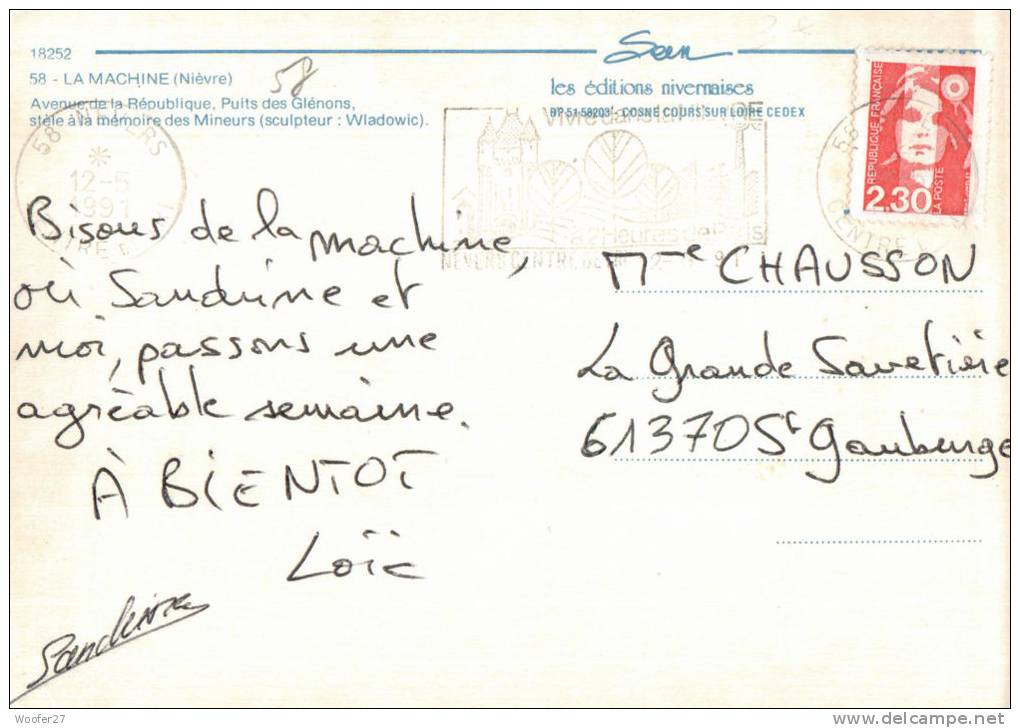 18252
58 - LA MACHINE (Nièvre)
Avenue de la République, Puits des Glénons,
stèle à la mémoire des Mineurs (sculpteur : Wladowic).
58
les éditions nivernaises
BP 51-58203 - COSNE COURS SUR LOIRE CEDEX
58 NEVERS
12-5
1991
à 2 Heures de Paris
NEVERS CENTRE
REPUBLIQUE FRANÇAISE
2.30
LA POSTE
Bisous de la machine,
où Sandrine et
moi, passons une
agrèable semaine.
À BIENTOT
Loïc
Sandrine
Mme CHAUSSON
La Grande Savetière
61370 St Gauburge
Woofer27
www.delcampe.net